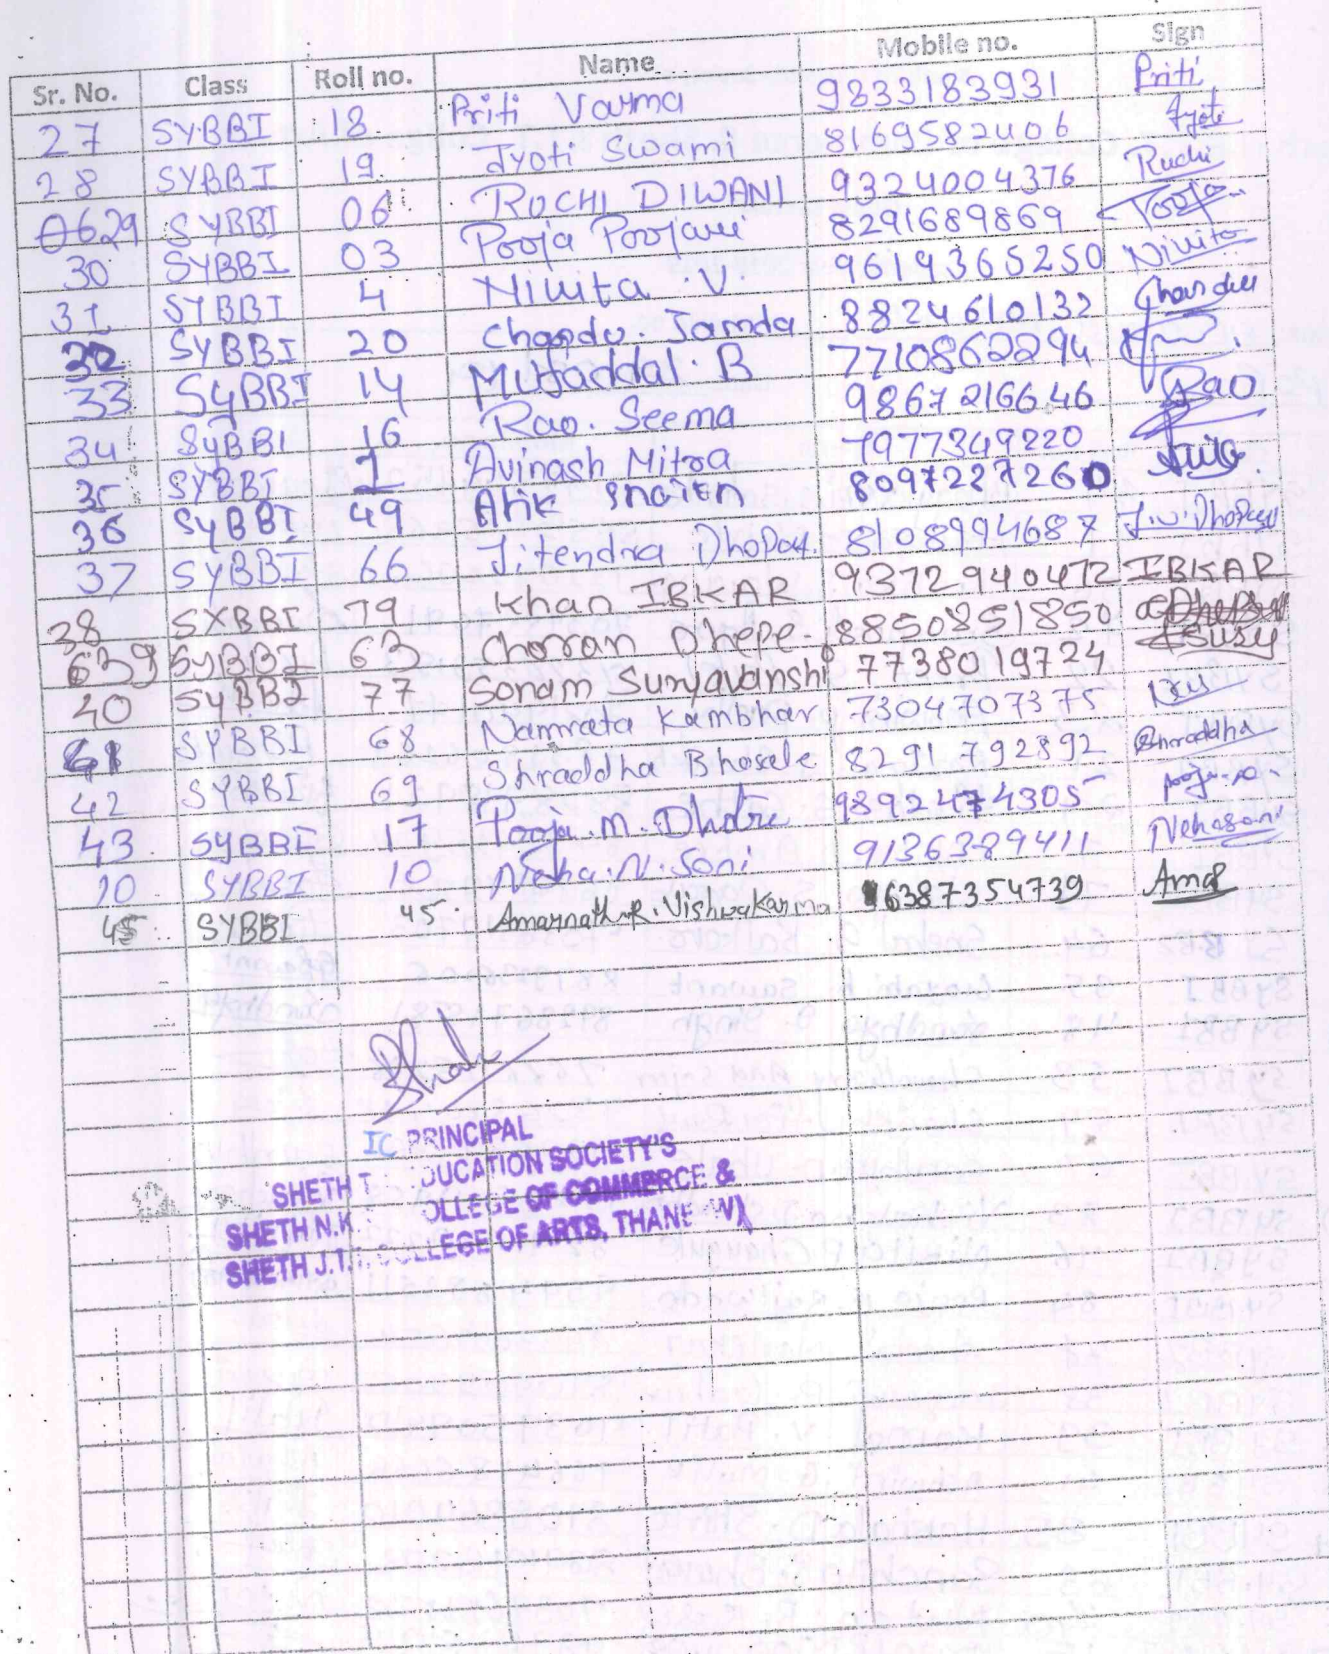 Sr. No. Class Roll no. Name Mobile no. Sign
27 SYBBI 18 Priti Varma 9833183931 Priti
28 SYBBI 19 Jyoti Swami 8169582406 Jyoti
0629 SYBBI 06 RUCHI DIWANI 9324004376 Ruchi
30 SYBBI 03 Pooja Poojari 8291689869 Pooja
31 SYBBI 4 Nivita . V 9619365250 Nivita
32 SYBBI 20 Chandu. Jamda 8824610132
33 SYBBI 14 Mufaddal. B 7710862294
34 SYBBI 16 Rao. Seema 9867216646 Rao
35 SYBBI 1 Avinash Mitra 7977349220
36 SYBBI 49 Atik Shaikh 8097227260
37 SYBBI 66 Jitendra Dhopat. 8108994687
38 SYBBI 79 Khan IBKAR 9372940472 IBKAR
639 SYBBI 63 Chavan Dhepe. 8850851850
40 SYBBI 77 Sonam Suryavanshi 7738019724
41 SYBBI 68 Namrata Kambhar 7304707375
42 SYBBI 69 Shraddha Bhosele 8291792892 Shraddha
43 SYBBI 17 Pooja. M. Dhotre 9892474305
10 SYBBI 10 Neha. N. Soni 9136389411 Nehasoni
45 SYBBI 45 Amarnath.R. Vishwakarma 6387354739 Amar
IC PRINCIPAL
SHETH T. DUCATION SOCIETY'S
SHETH N.K. OLLEGE OF COMMERCE &
SHETH J.T. COLLEGE OF ARTS, THANE (W)